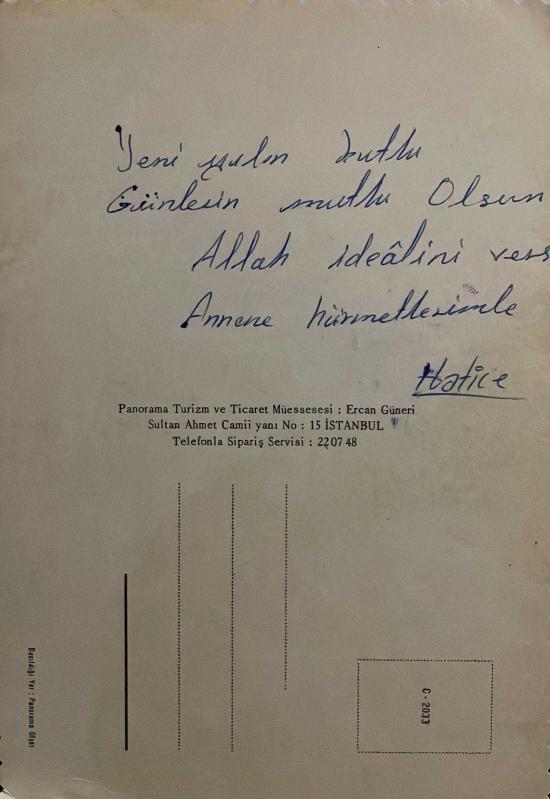 Yeni yılın kutlu
Günlerin mutlu Olsun
Allah ideâlini vers
Annene hürmetlerimle
Hatice
Panorama Turizm ve Ticaret Müessesesi : Ercan Güneri
Sultan Ahmet Camii yanı No : 15 İSTANBUL
Telefonla Sipariş Servisi : 22 07 48
Basıldığı Yer : Panorama Ofset
C - 2033